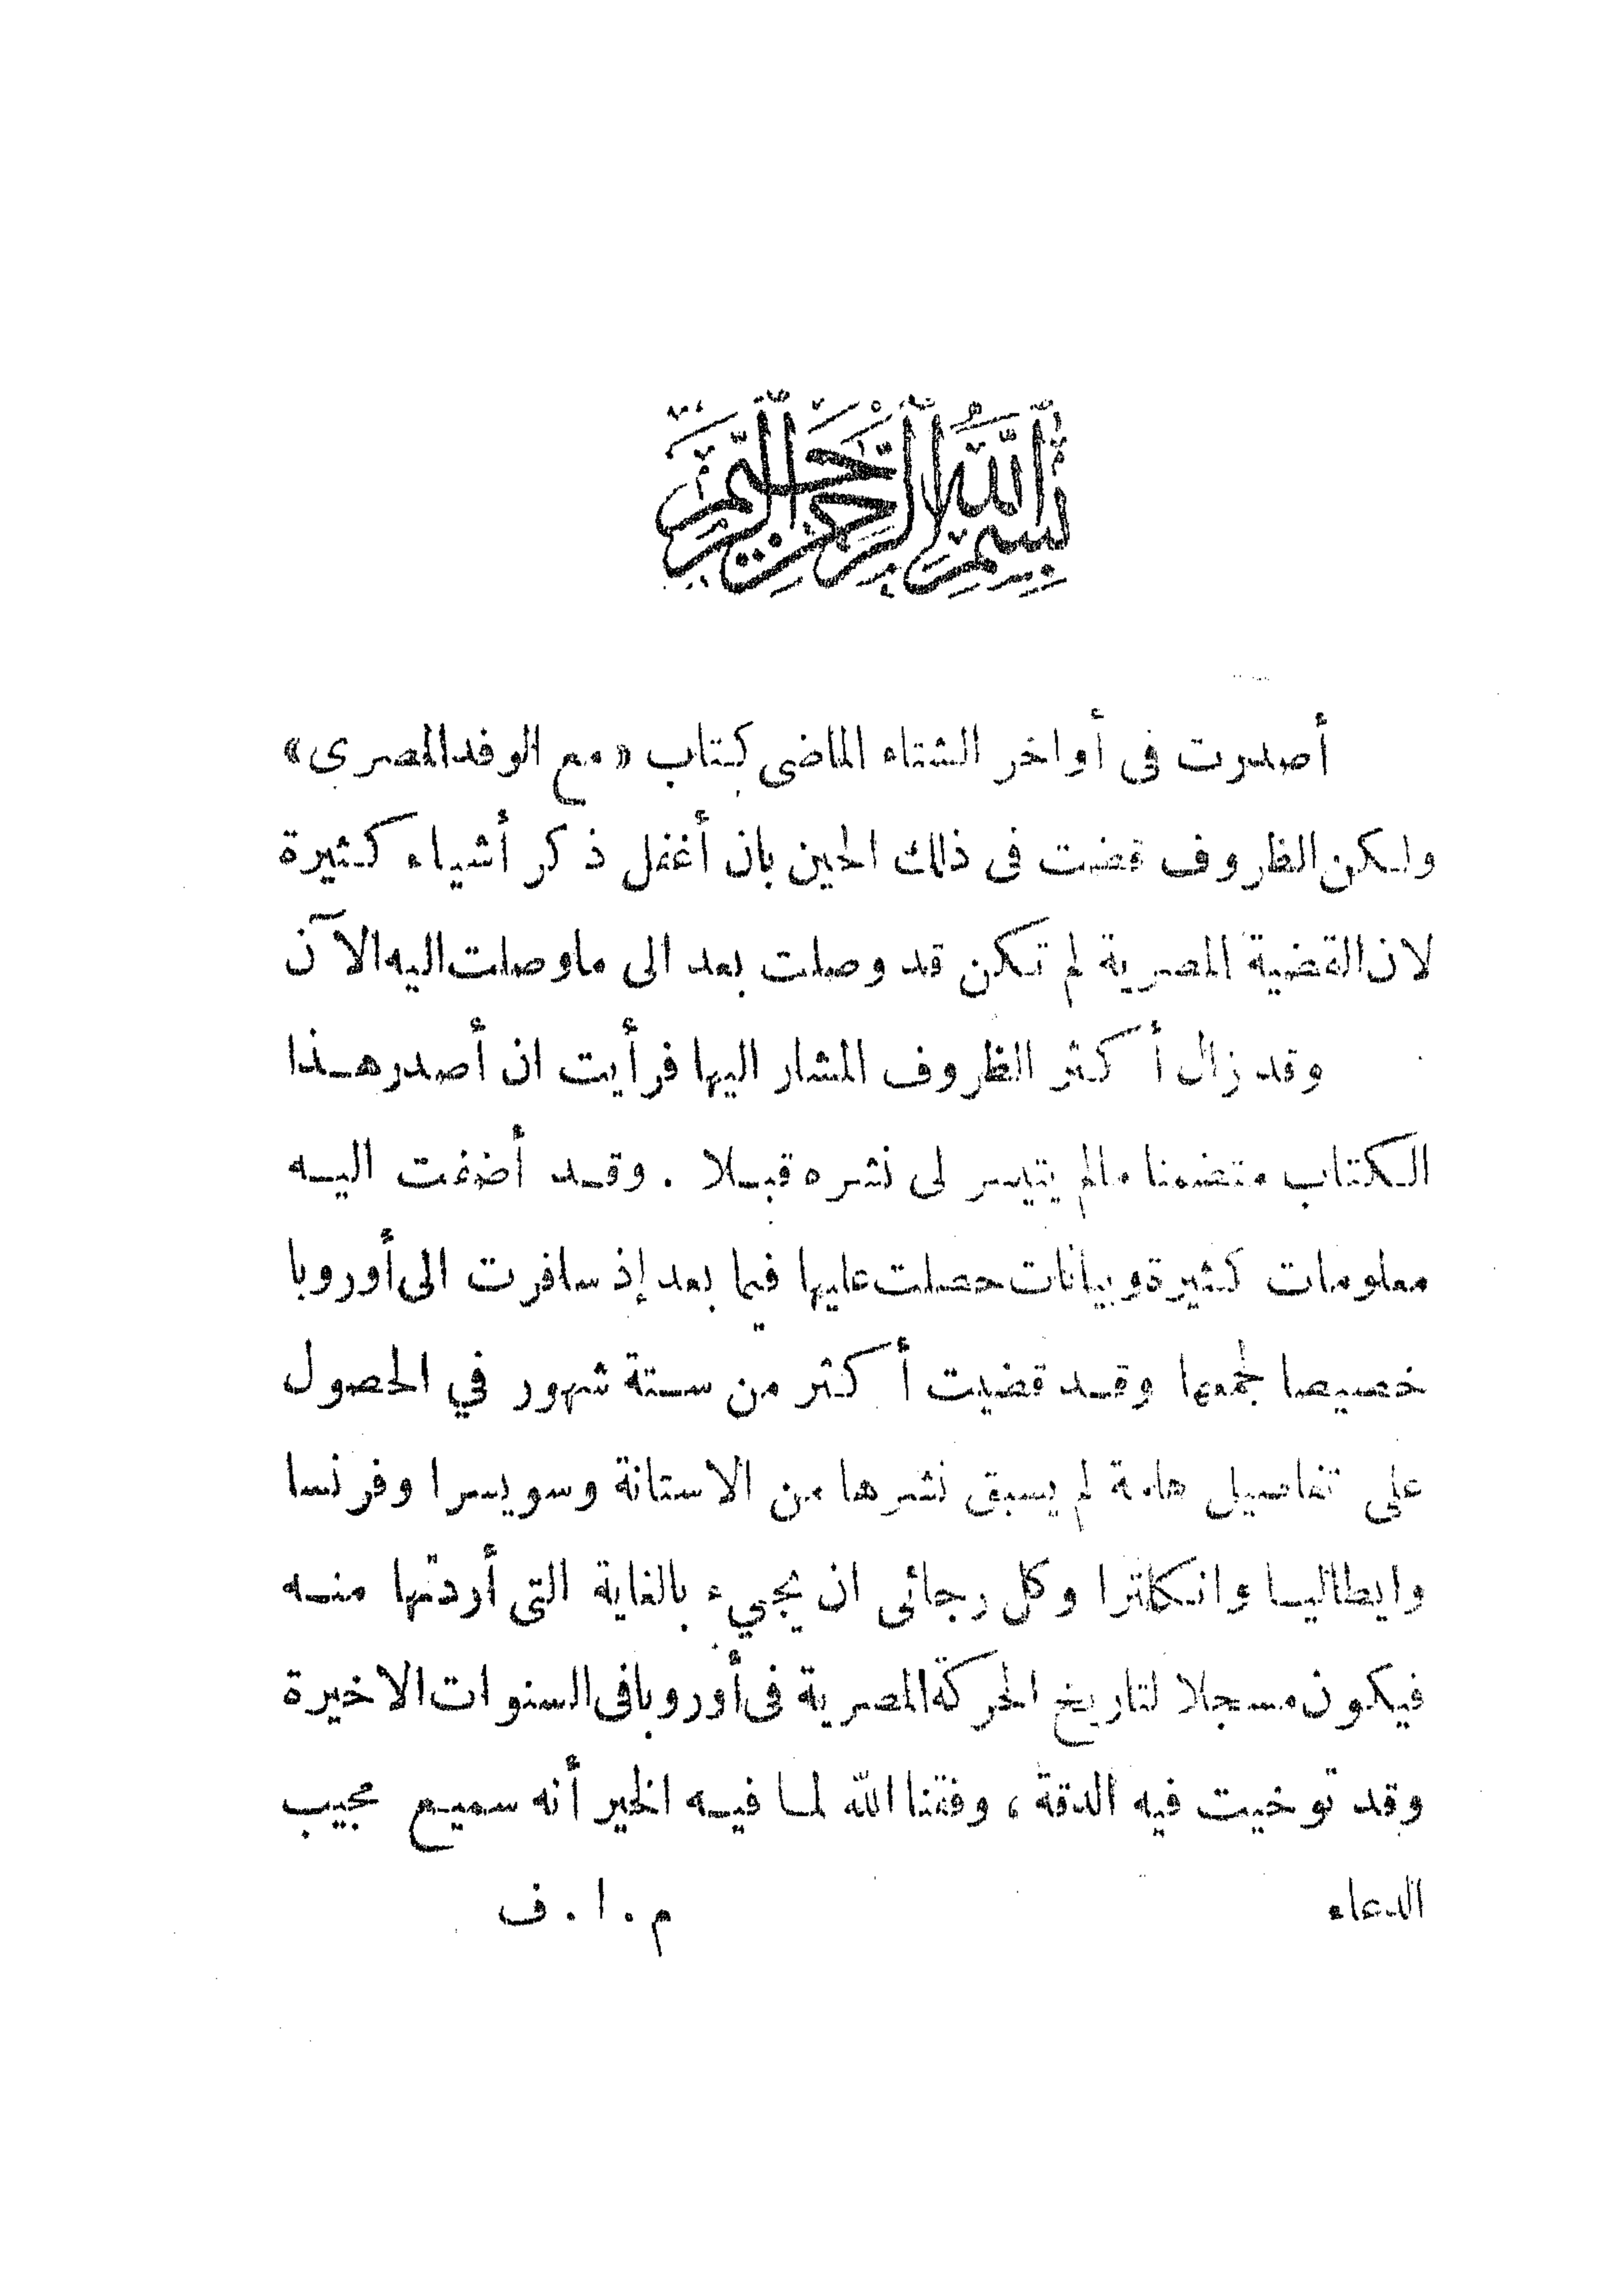 بسم الله الرحمن الرحيم
أصدرت فى أواخر الشتاء الماضى كتاب «مع الوفد المصرى»
ولكن الظروف قضت فى ذلك الحين بان أغفل ذكر أشياء كثيرة
لان القضية المصرية لم تكن قد وصلت بعد الى ما وصلت اليه الآن
وقد زال أكثر الظروف المشار اليها فرأيت ان أصدر هذا
الكتاب متضمنا مالم يتيسر لى نشره قبلا . وقد أضفت اليه
معلومات كثيرة وبيانات حصلت عليها فيما بعد إذ سافرت الى أوروبا
خصيصا لجمعها وقد قضيت أكثر من ستة شهور في الحصول
على تفاصيل هامة لم يسبق نشرها من الاستانة وسويسرا وفرنسا
وايطاليا وانكلترا وكل رجائى ان يجيء بالغاية التى أردتها منه
فيكون مسجلا لتاريخ الحركة المصرية فى أوروبا فى السنوات الاخيرة
وقد توخيت فيه الدقة ، وفقنا الله لما فيه الخير أنه سميع مجيب
الدعاء م . ا . ف